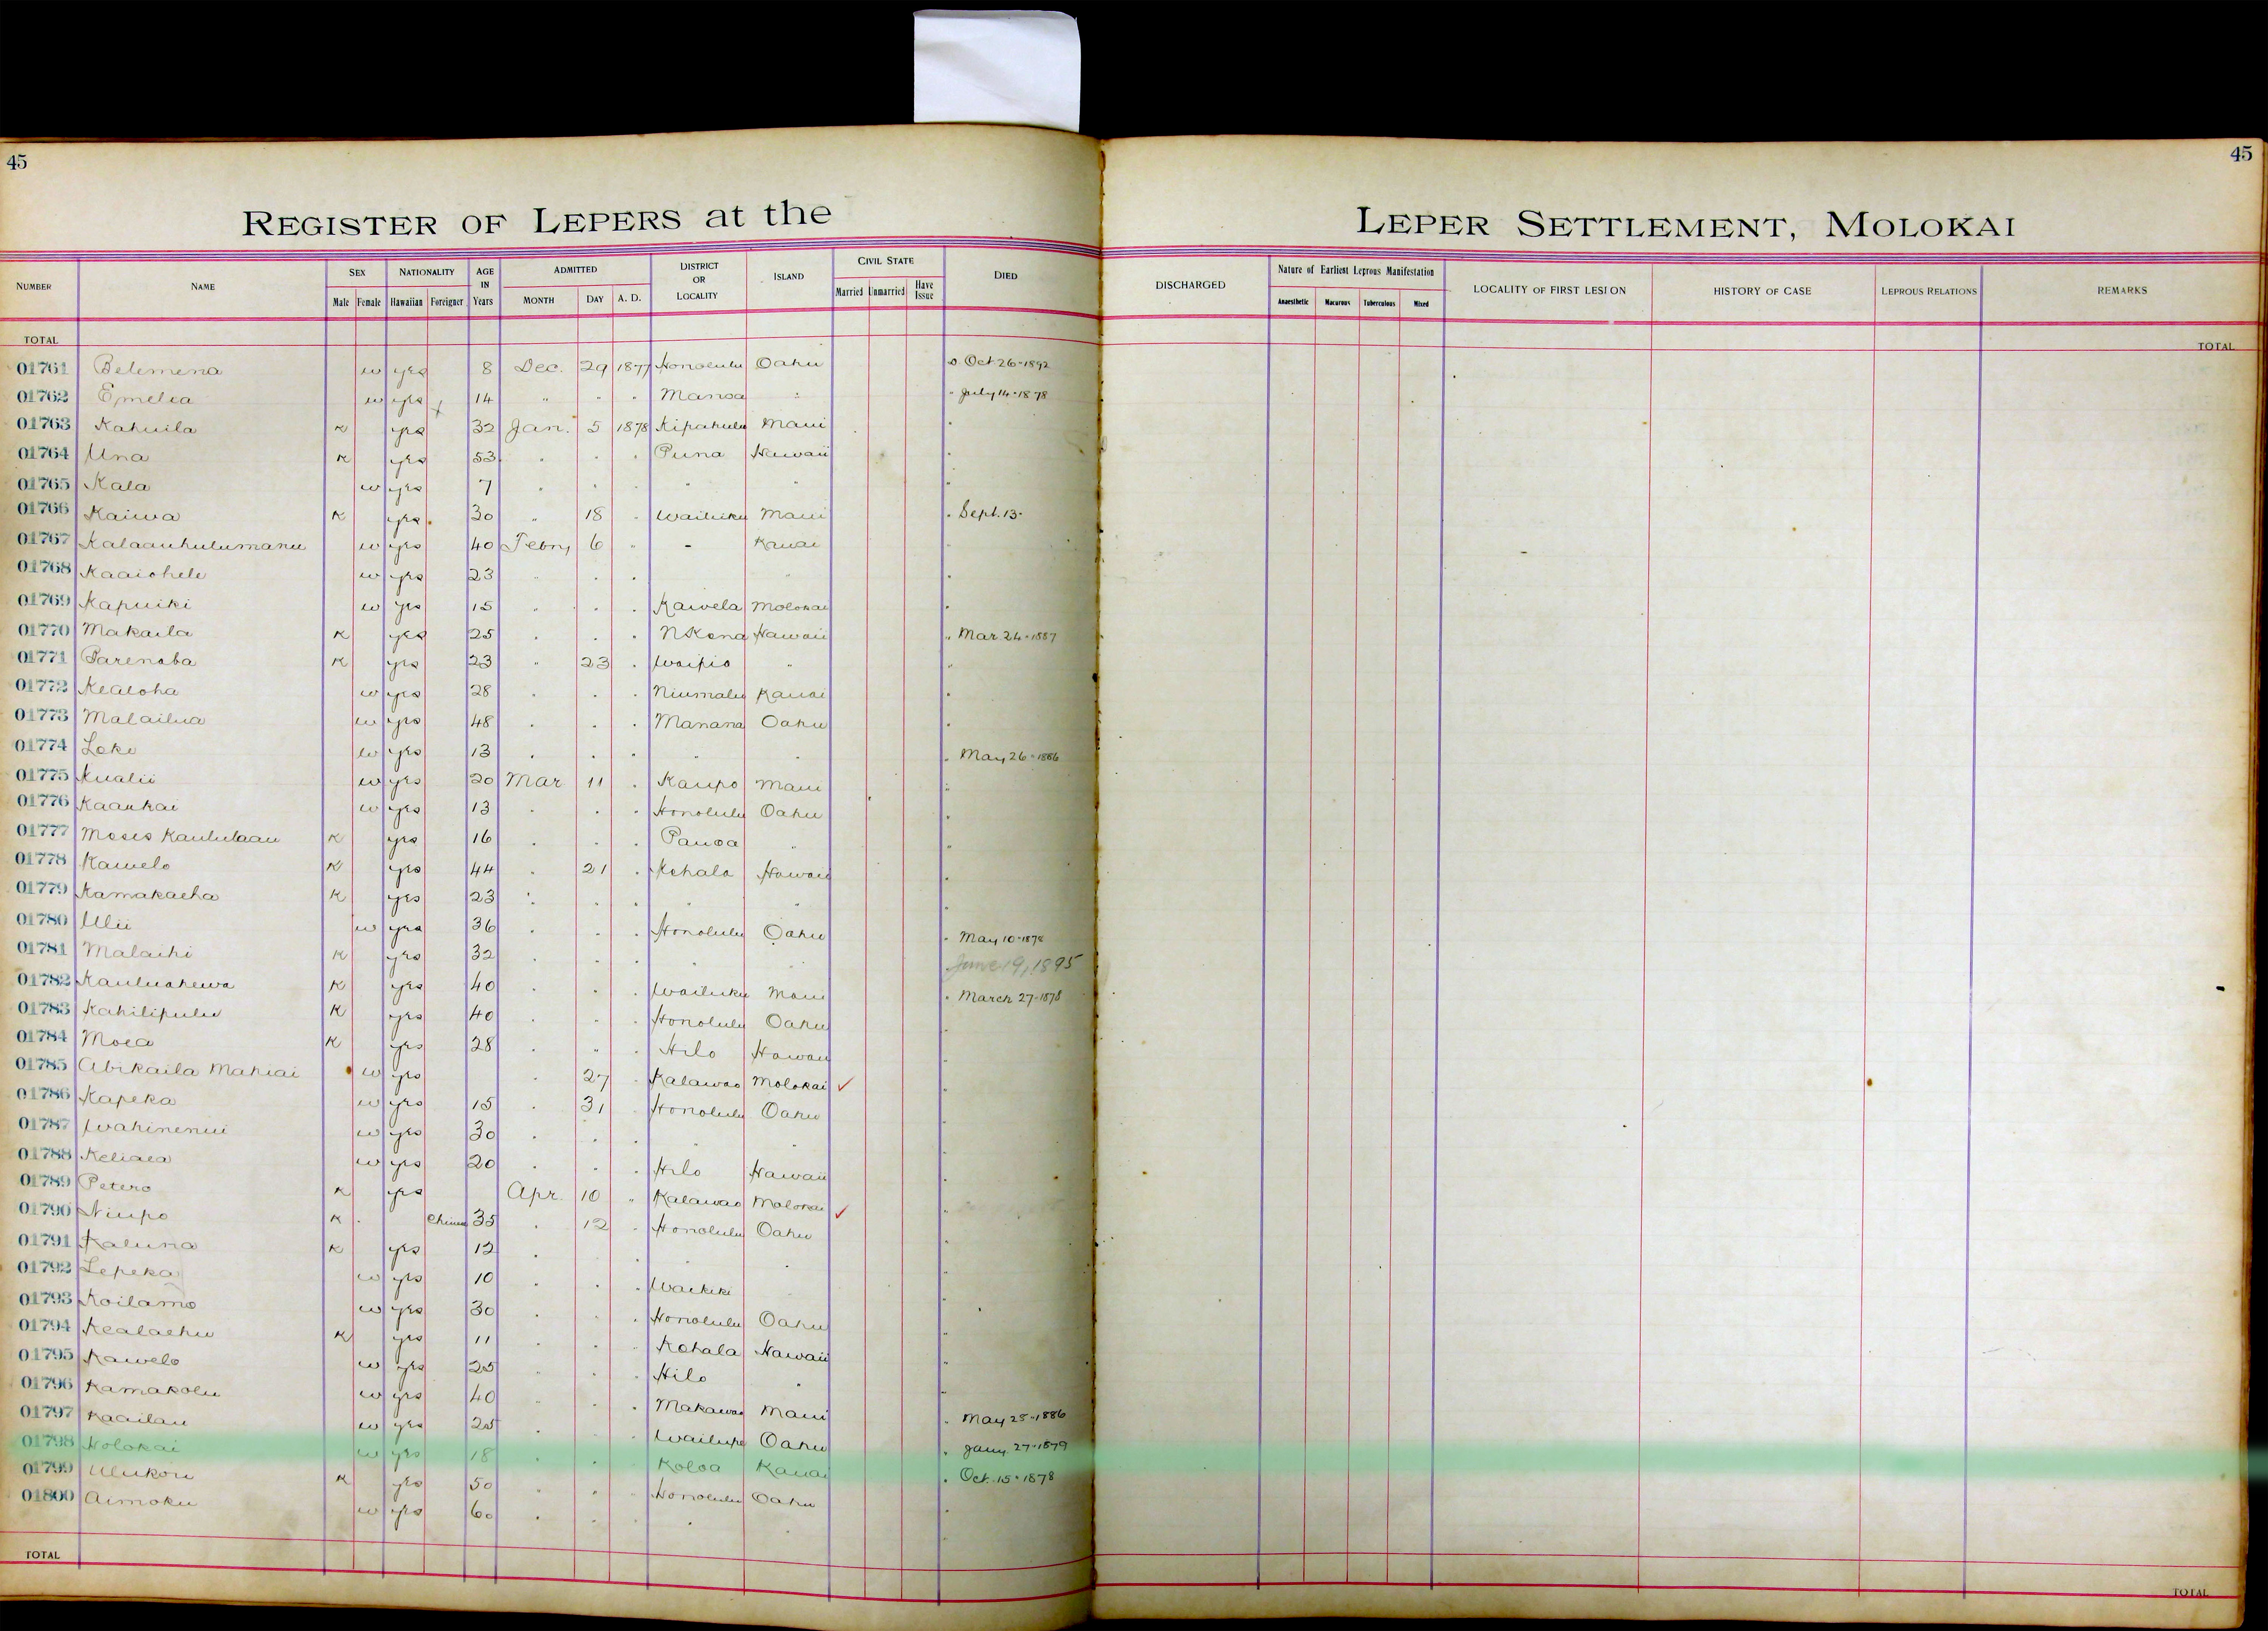 45
45
REGISTER OF LEPERS at the
LEPER SETTLEMENT, MOLOKAI
NUMBER NAME SEX Male Female NATIONALITY Hawaiian Foreigner AGE IN Years ADMITTED MONTH DAY A. D. DISTRICT OR LOCALITY ISLAND CIVIL STATE Married Unmarried Have Issue DIED DISCHARGED Nature of Earliest Leprous Manifestation Anaesthetic Macurous Tuberculous Mixed LOCALITY OF FIRST LESION HISTORY OF CASE LEPROUS RELATIONS REMARKS
TOTAL TOTAL
01761 Belemena w yes 8 Dec. 29 1877 Honolulu Oahu Oct 26-1892
01762 Emelia w yes 14 " " " Manoa " " July 14-1878
01763 Kahuila K yes 32 Jan. 5 1878 Kipahulu Maui "
01764 Una K yes 53 " " " Puna Hawaii "
01765 Kala w yes 7 " " " " " "
01766 Kaiwa K yes 30 " 18 " Wailuku Maui " Sept. 13-
01767 Kalaauhulumanu w yes 40 Febry 6 " - Kauai "
01768 Kaaiohele w yes 23 " " " " "
01769 Kapuiki w yes 15 " " " Kawela Molokai "
01770 Makaila K yes 25 " " " N Kona Hawaii " Mar 24-1887
01771 Parenaba K yes 23 " 23 " Waipio " "
01772 Kealoha w yes 28 " " " Niumalu Kauai "
01773 Malailua w yes 48 " " " Manana Oahu "
01774 Loke w yes 13 " " " " " " May 26-1886
01775 Kualii w yes 20 Mar 11 " Kaupo Maui "
01776 Kaaukai w yes 13 " " " Honolulu Oahu "
01777 Moses Kaululaau K yes 16 " " " Pauoa " "
01778 Kawelo K yes 44 " 21 " Kohala Hawaii "
01779 Kamakaeha K yes 23 " " " " " "
01780 Ulii w yes 36 " " " Honolulu Oahu " May 10-1878
01781 Malaihi K yes 32 " " " " " June 19, 1895
01782 Kauluahewa K yes 40 " " " Wailuku Maui " March 27-1878
01783 Kahilipulu K yes 40 " " " Honolulu Oahu "
01784 Moea K yes 28 " " " Hilo Hawaii "
01785 Abikaila Mahiai w yes " 27 " Kalawao Molokai ✓ "
01786 Kapeka w yes 15 " 31 " Honolulu Oahu "
01787 Wahinenui w yes 30 " " " " " "
01788 Keliaea w yes 20 " " " Hilo Hawaii "
01789 Petero K yes Apr. 10 " Kalawao Molokai ✓ "
01790 Niupo K Chinese 35 " 12 " Honolulu Oahu "
01791 Kaluna K yes 12 " " " "
01792 Lepeka w yes 10 " " " Waikiki " "
01793 Koilamo w yes 30 " " " Honolulu Oahu "
01794 Kealaehu K yes 11 " " " Kohala Hawaii "
01795 Kawelo w yes 25 " " " Hilo " "
01796 Kamakolu w yes 40 " " " Makawao Maui "
01797 Kaailau w yes 25 " " " Wailupe Oahu " May 25-1886
01798 Holokai w yes 18 " " " Koloa Kauai " Jany 27-1879
01799 Ulukou K yes 50 " " " Honolulu Oahu " Oct. 15-1878
01800 Aimoku w yes 60 " " " " " "
TOTAL TOTAL